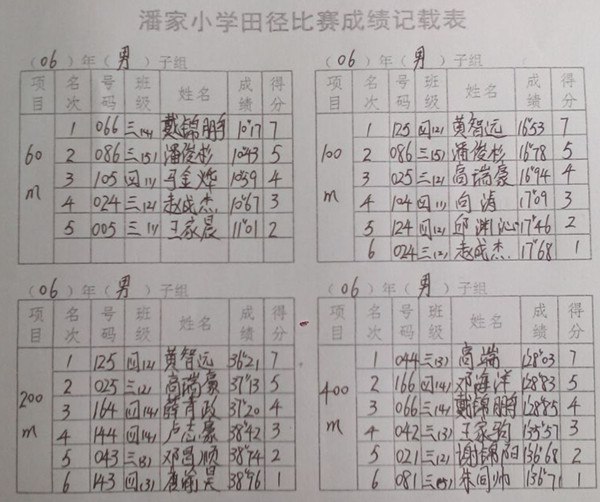 潘家小学田径比赛成绩记载表
(06)年(男)子组
项目 名次 号码 班级 姓名 成绩 得分
60m
1 066 三(4) 戴锦鹏 10"17 7
2 086 三(5) 潘俊杉 10"43 5
3 105 四(1) 马金烨 10"59 4
4 024 三(2) 赵成杰 10"67 3
5 005 三(1) 王家晨 11"01 2
(06)年(男)子组
项目 名次 号码 班级 姓名 成绩 得分
100m
1 125 四(2) 黄智远 16"53 7
2 086 三(5) 潘俊杉 16"78 5
3 025 三(2) 高瑞豪 16"94 4
4 104 四(1) 向涛 17"09 3
5 124 四(2) 邱渊沁 17"46 2
6 024 三(2) 赵成杰 17"68 1
(06)年(男)子组
项目 名次 号码 班级 姓名 成绩 得分
200m
1 125 四(2) 黄智远 36"21 7
2 025 三(2) 高瑞豪 37"13 5
3 164 四(4) 薛青政 37"20 4
4 144 四(4) 卢志豪 38"42 3
5 043 三(3) 邓昌顺 38"74 2
6 143 四(3) 昊 38"96 1
(06)年(男)子组
项目 名次 号码 班级 姓名 成绩 得分
400m
1 044 三(3) 高端 1'28"03 7
2 166 四(4) 邓海洋 1'28"83 5
3 066 三(4) 戴锦鹏 1'28"85 4
4 042 三(3) 王家驹 1'35"57 3
5 021 三(2) 谢锦阳 1'36"68 2
6 081 三(5) 帅 1'36"71 1